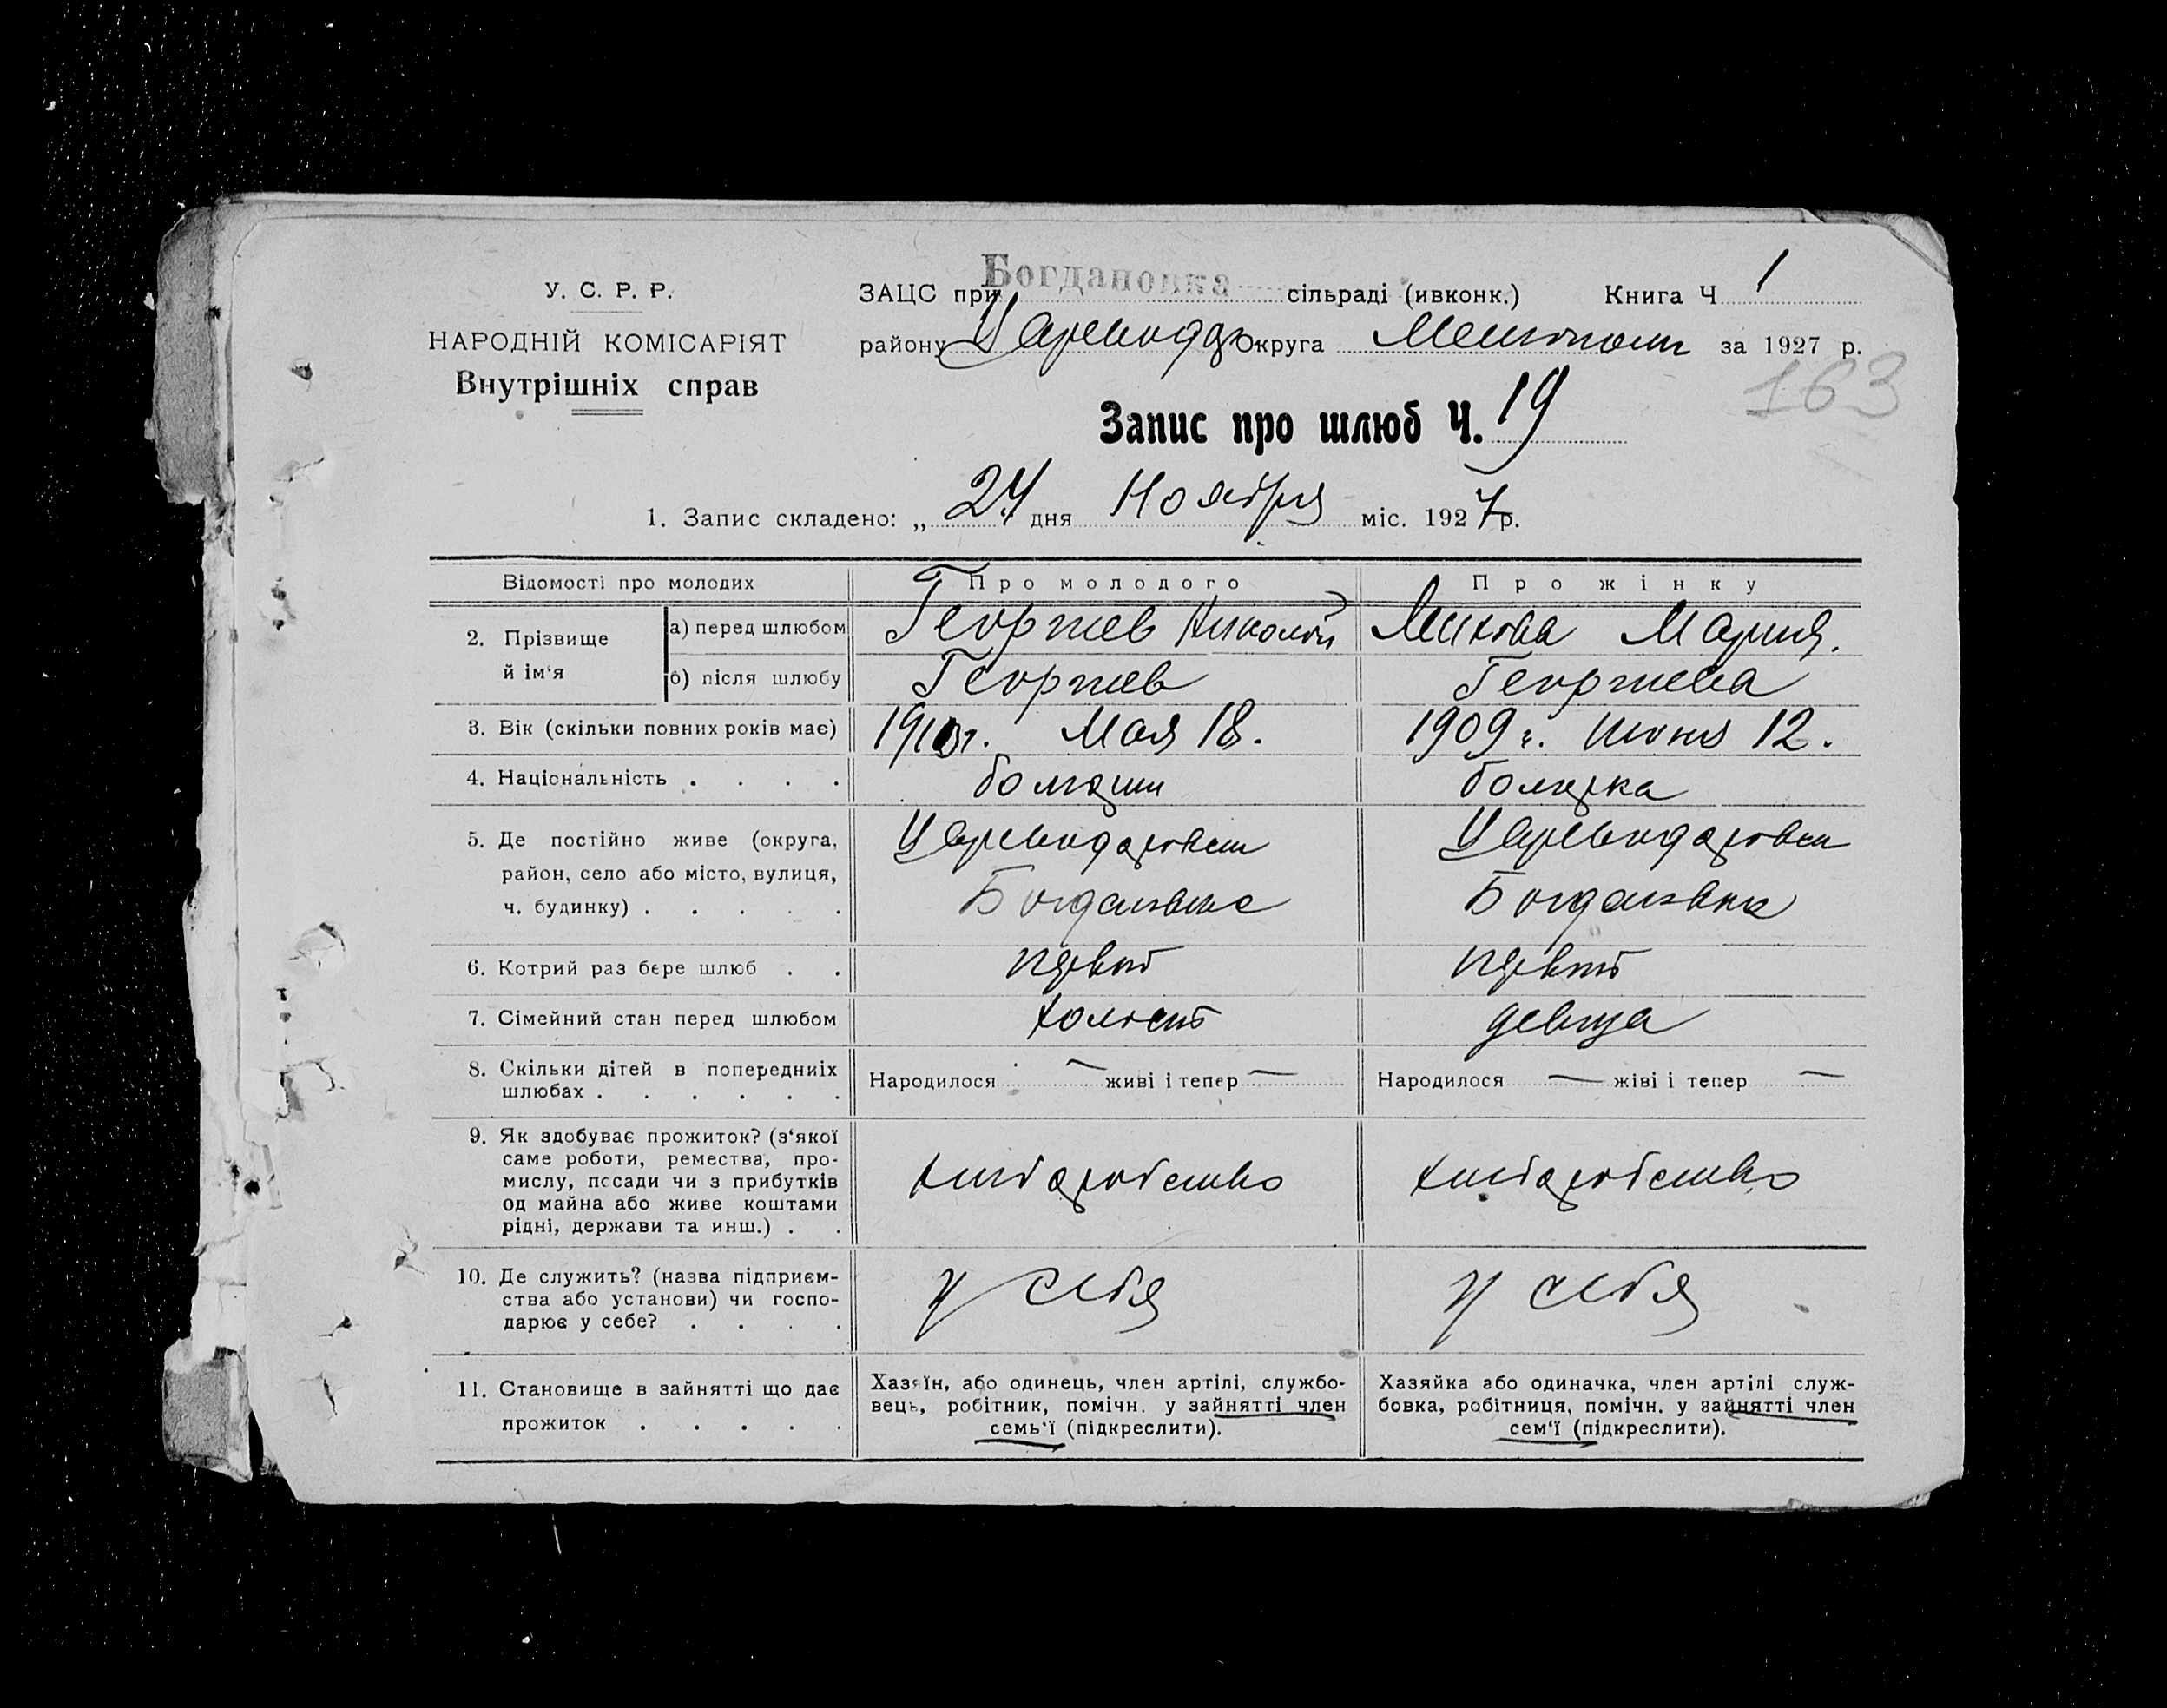 Богдановка
У. С. Р. Р.
ЗАЦС при сільраді (ивконк.) Книга Ч 1
НАРОДНІЙ КОМІСАРІЯТ
району Царевода Округа Мелитополь за 1927 р.
Внутрішніх справ
163
Запис про шлюб Ч. 19
1. Запис складено: „ 24 " дня Ноября міс. 1927 р.
Відомості про молодих Про молодого Про жінку
2. Прізвище й ім'я
а) перед шлюбом Георгиев Николай Мария.
б) після шлюбу Георгиев Георгиева
3. Вік (скільки повних років має) 1910 г. Мая 18. 1909 г. Июня 12.
4. Національність . . . . болгарин болгарка
5. Де постійно живе (округа, Цареводаровск Цареводаровск
район, село або місто, вулиця, Богдановка Богдановка
ч. будинку) . . . . .
6. Котрий раз бере шлюб . . первый первый
7. Сімейний стан перед шлюбом холост девица
8. Скільки дітей в попередниіх Народилося — живі і тепер — Народилося — жіві і тепер —
шлюбах . . . . . .
9. Як здобуває прожиток? (з'якої
саме роботи, ремества, про-
мислу, посади чи з прибутків хлебаробство хлебаробство
од майна або живе коштами
рідні, держави та инш.) . .
10. Де служить? (назва підприєм-
ства або установи) чи госпо- у себя у себя
дарює у себе? . . . .
11. Становище в зайнятті що дає Хазяїн, або одинець, член артілі, службо- Хазяйка або одиначка, член артілі служ-
вець, робітник, помічн. у зайнятті член бовка, робітниця, помічн. у зайнятті член
прожиток . . . . . семь'ї (підкреслити). сем'ї (підкреслити).